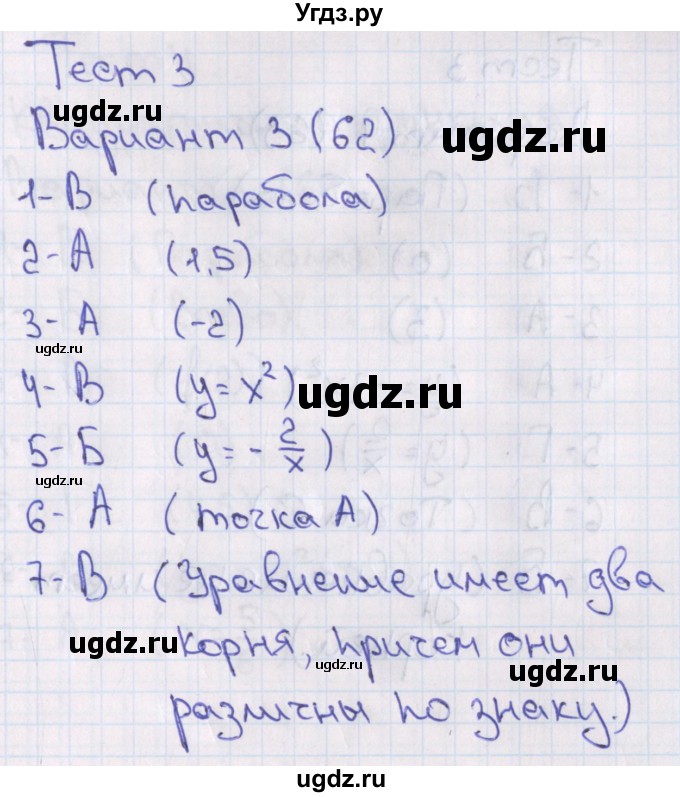 Угдз.ру
Тест 3
ugdz.ru
Вариант 3 (62)
ugdz.ru
1-В (парабола)
2-А (1,5)
3-А (-2)
ugdz.ru
4-В (y=x²)
ugdz.ru
5-Б (y=-2/x)
ugdz.ru
6-А (точка А)
7-В (Уравнение имеет два
ugdz.ru
корня, причем они
ugdz.ru
ugdz.ru
различны по знаку.)
ugdz.ru